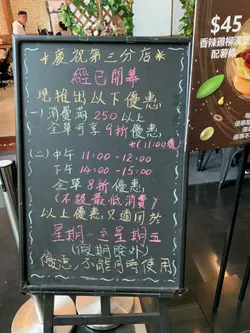 慶祝第三分店
經已開幕
現推出以下優惠
(一) 消費滿250以上
全單可享9折優惠
*(11:00後)
(二) 中午 11:00 - 12:00
下午 14:00 - 15:00
全單8折優惠
(不設最低消費)
以上優惠只適用於
星期一至星期五
(假期除外)
優惠不能同時使用
$45
香辣雞柳漢堡
配薯條